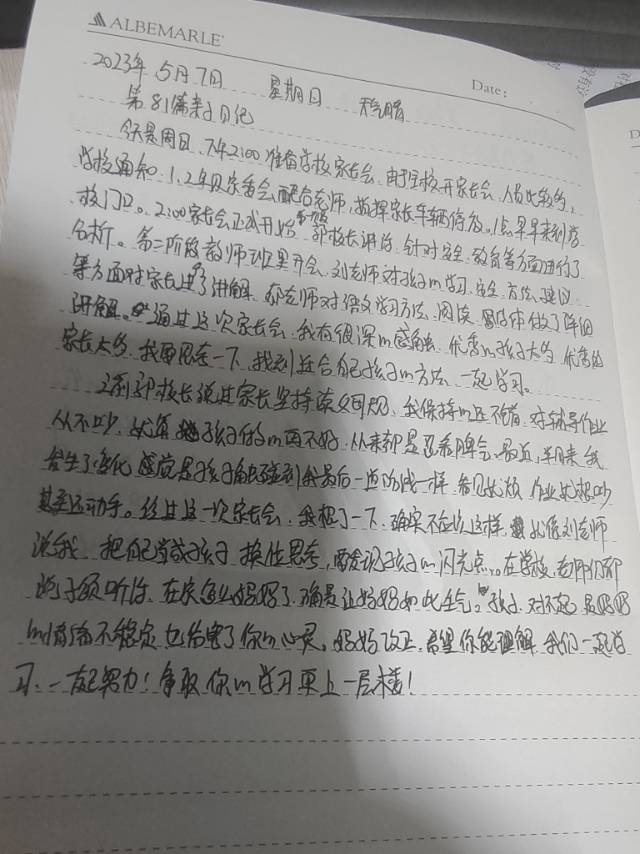 ALBEMARLE
Date:
2023年5月7日 星期日 天气晴
第81篇亲子日记
今天是周日,下午2:00准备学校家长会,由于全校开家长会,人员比较多,
学校通知:1.2年级家委会配合老师,指挥家长车辆停放。1点早早来到学
校门口。2:00家长会正式开始 第一阶段 郭校长讲话,针对安全、教育等方面进行了
分析。第二阶段教师班里开会,刘老师对孩子的学习、安全、方法、建议
等方面对家长进行了讲解,老师对语文学习方法,阅读、写作做了详细
讲解。通过这次家长会,我有很深的感触,优秀的孩子大多优秀的
家长太多,我要思考一下,找到适合自己孩子的方法,一起学习。
之前郭校长说过家长坚持读父母规,我保持的还不错,对辅导作业
从不吵,就算孩子做的再不好,从来都是忍着脾气。最近,半月来我
发生了变化,感觉是孩子触碰到我最后一道防线一样,看见就烦,作业就想吵
甚至还动手。经过这一次家长会,我想了一下,确实不应该这样,就像刘老师
说我,把自己当成孩子,换位思考,要发现孩子的闪光点。在学校,老师们都
孩子听话,在家怎么妈妈了,确是让妈妈如此生气。孩子,对不起,是妈妈
的情绪不稳定,也伤害了你的心灵,妈妈改正,希望你能理解,我们一起学
习,一起努力!争取你的学习更上一层楼!